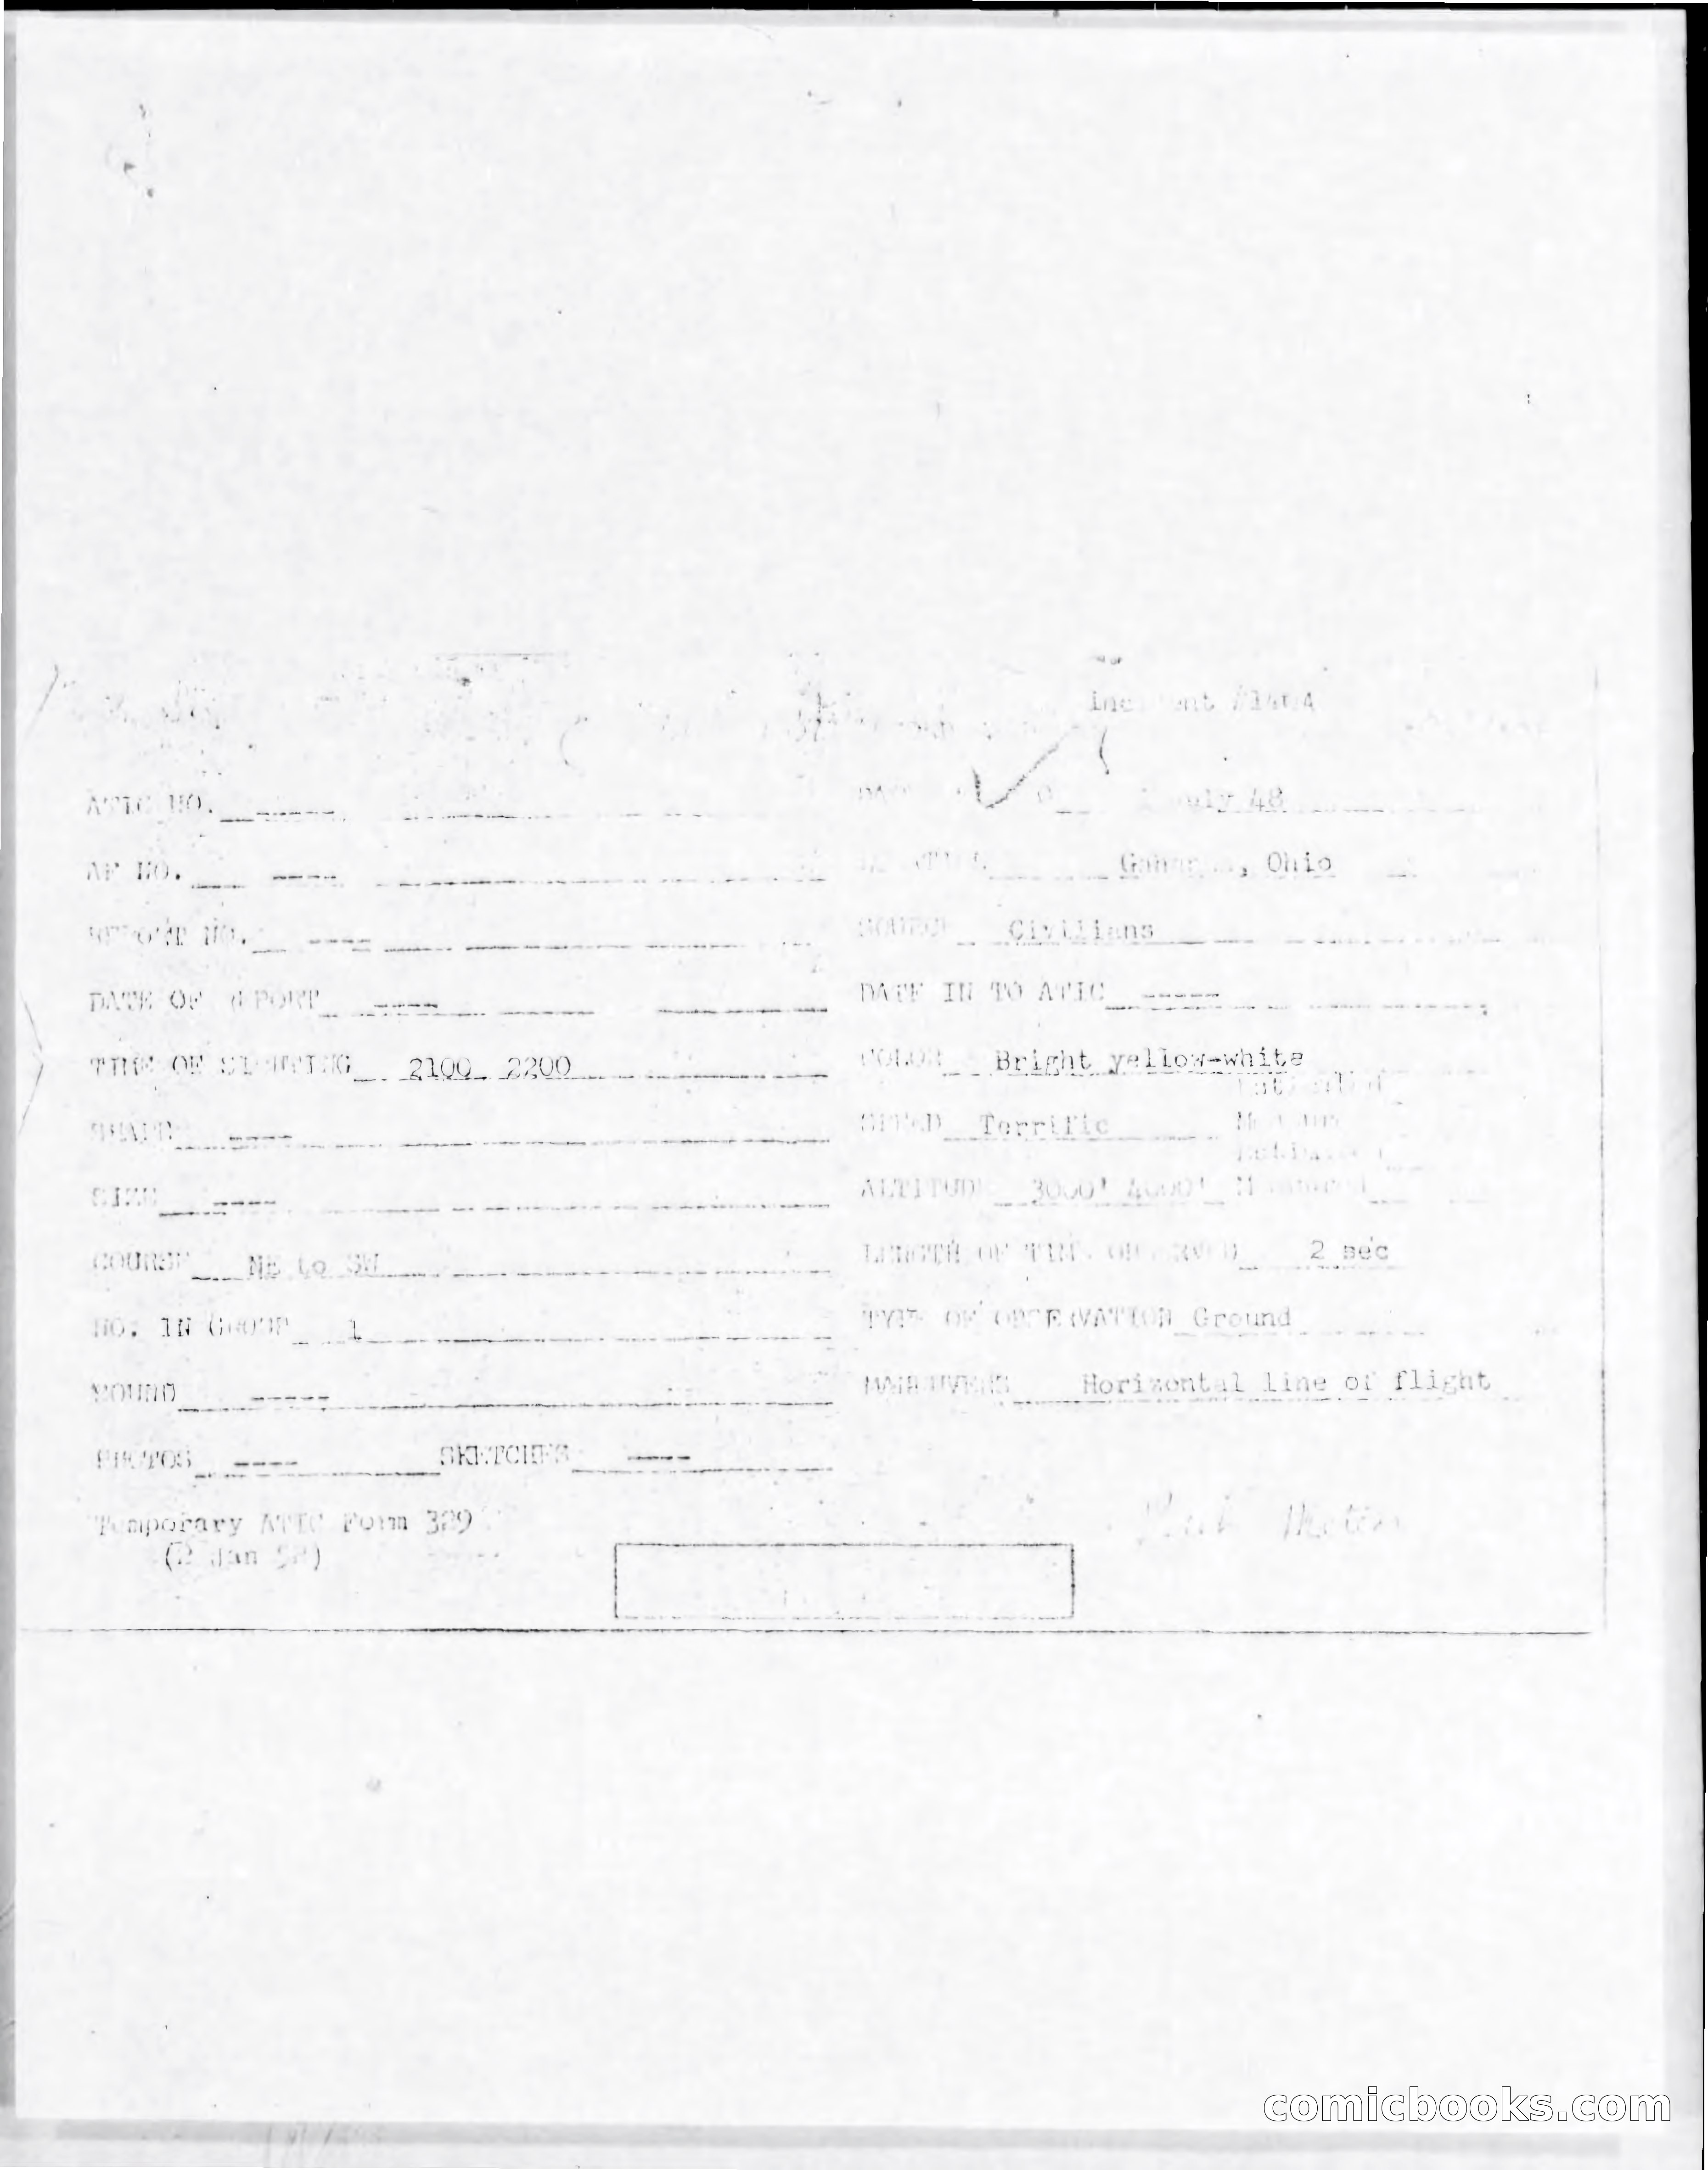 Incident
ATIC NO. -----
July 48
AF NO. ----
Ohio
REPORT NO. ----
SOURCE Civilians
DATE OF REPORT ----
DATE IN TO ATIC -----
TIME OF SIGHTING 2100 2200
COLOR Bright yellow-white
SHAPE ----
SPEED Terrific
SIZE ----
ALTITUDE 3000' 4000' Measured
COURSE NE to SW
LENGTH OF TIME OBSERVED 2 sec
NO. IN GROUP 1
TYPE OF OBSERVATION Ground
SOUND -----
MANEUVERS Horizontal line of flight
PHOTOS ---- SKETCHES ----
Temporary ATIC Form 329
(2 Jan
comicbooks.com